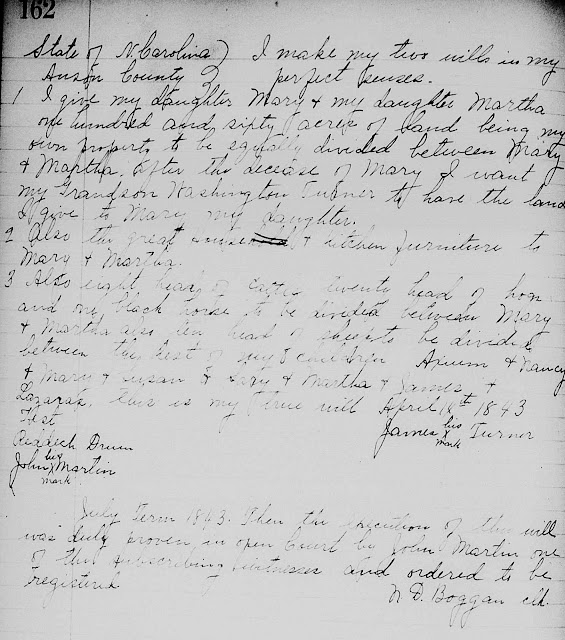 162
State of N. Carolina ) I make my two wills in my
Anson County } perfect senses.
1 I give my daughter Mary & my daughter Martha
one hundred and sixty acres of land being my
own property to be equally divided between Mary
& Martha. After the decease of Mary I want
my Grandson Washington Turner to have the land
I give to Mary my daughter.
2 Also the great & kitchen furniture to
Mary & Martha.
3 Also eight head of cattle twenty head of
and my black horse to be divided between Mary
& Martha also ten head of to be divided
between the rest of my children & Nancy
& Mary & Susan & & Martha & James &
this is my true will April 16th 1843
Test James his x mark Turner
Drum
John his x mark Martin
July Term 1843. Then the execution of this will
was duly proven in open Court by John Martin one
of the subscribing witnesses and ordered to be
registered
N. D. Boggan clk.